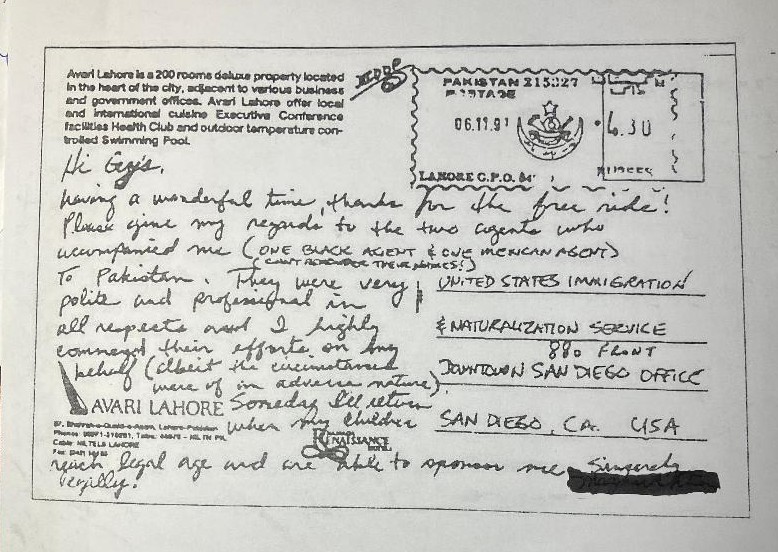 Avari Lahore is a 200 rooms deluxe property located
in the heart of the city, adjacent to various business
and government offices. Avari Lahore offer local
and international cuisine Executive Conference
facilities Health Club and outdoor temperature con-
trolled Swimming Pool.
PAKISTAN 215327
POSTAGE
06.11.91
4.30
RUPEES
LAHORE G.P.O.
Hi Guys,
having a wonderful time, thanks for the free ride!
Please give my regards to the two agents who
accompanied me (ONE BLACK AGENT & ONE MEXICAN AGENT)
(CAN'T REMEMBER THEIR NAMES!)
To Pakistan. They were very
polite and professional in
all respects and I highly
commend their efforts on my
behalf (albeit the circumstances
were of an adverse nature)
Someday I'll return
when my children
reach legal age and are able to sponsor me
legally.
Sincerely
UNITED STATES IMMIGRATION
& NATURALIZATION SERVICE
880 FRONT
DOWNTOWN SAN DIEGO OFFICE
SAN DIEGO, CA. USA
AVARI LAHORE
87, Shahrah-e-Quaid-e-Azam, Lahore-Pakistan
Cable: HILTELS LAHORE
RAMADA
RENAISSANCE
HOTEL